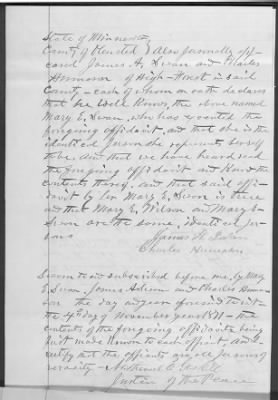 State of Minnesota
County of Olmsted } Also personally app-
eared James H, Swan and Charles
Harmson of High-Forest in said
County - each of whom on oath declares
that he Well Knows, the above named
Mary E, Swan, who has executed the
foregoing affidavit, and that she is the
identical person she represents herself
to be, and that we have heard read
the foregoing affidavit and Know the
contents thereof, and that said affi-
davit by her Mary E, Swan is true
and that Mary E, Wilson and Mary E
Swan are the same, identical per-
sons
James H Swan
Charles
Sworn to and subscribed before me, by Mary
E, Swan, James H Swan and Charles
on the day and year aforesaid to wit
the 4th day of November year 1871 - the
contents of the foregoing affidavits being
first made Known to each affiant, and I
certify that the affiants are persons of
veracity - Nathaniel C.
Justice of the Peace